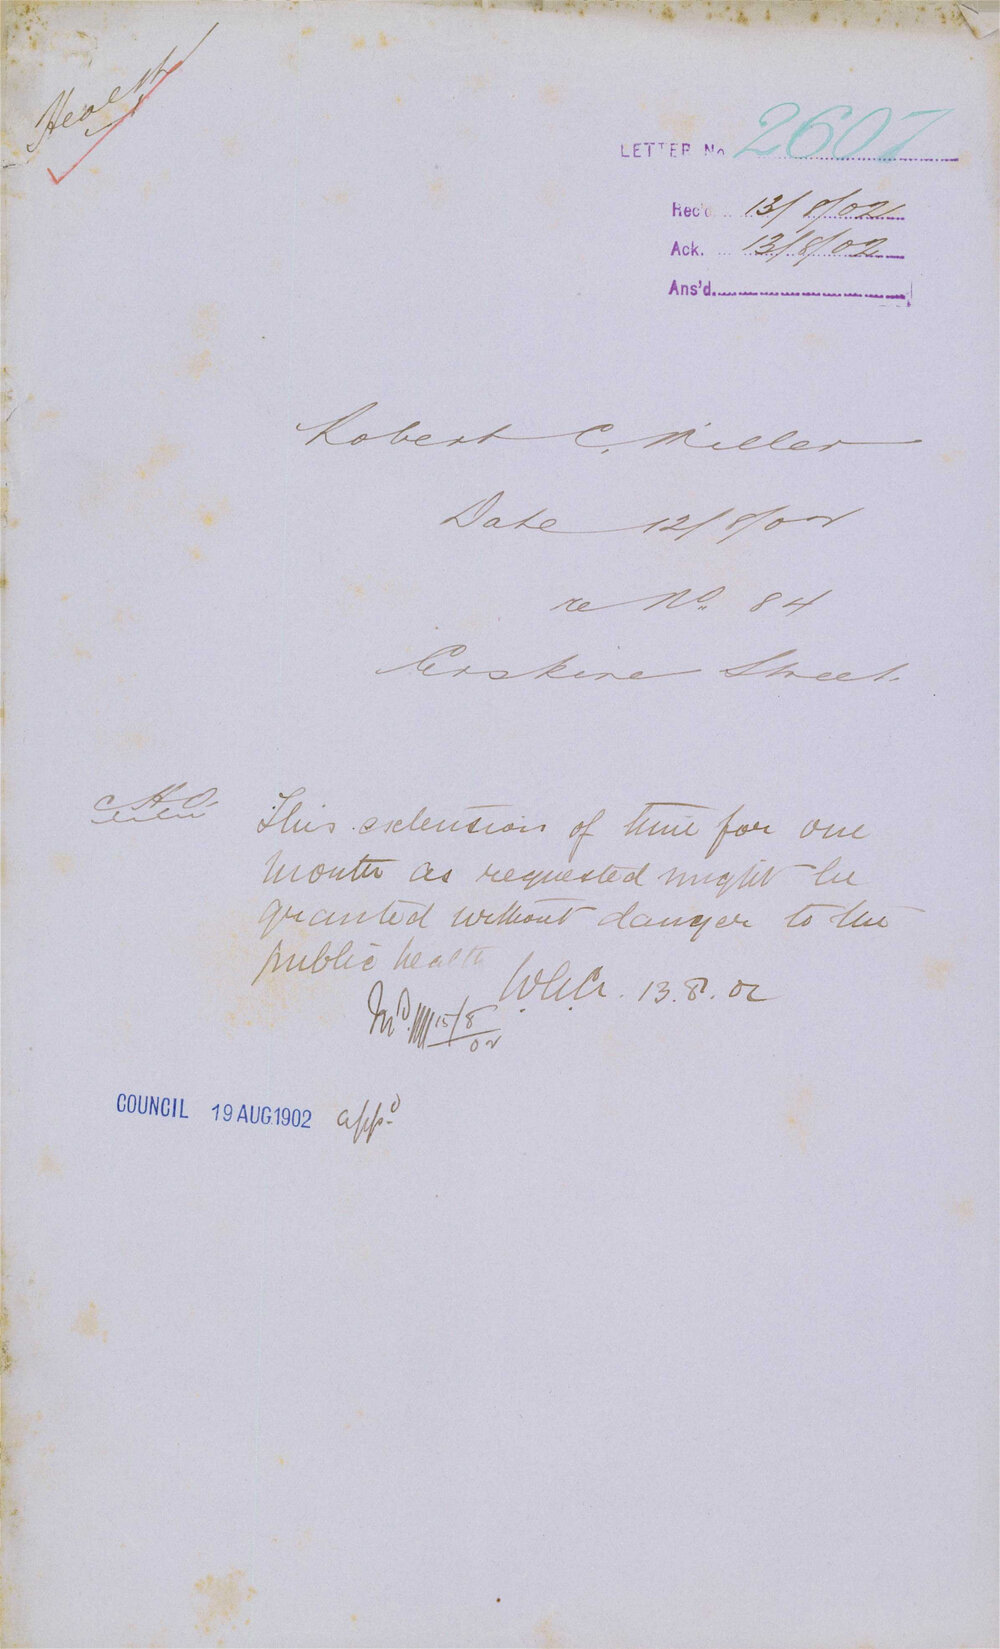 Health
LETTER No 2607
Rec'd 13/8/02
Ack. 13/8/02
Ans'd.
Robert C. Miller
Date 12/8/02
re No. 84
Erskine Street.
C.H.O.
This extension of time for one
month as requested might be
granted without danger to the
public health
W.G.A. 13.8.02
15/8/02
COUNCIL 19 AUG 1902 appd